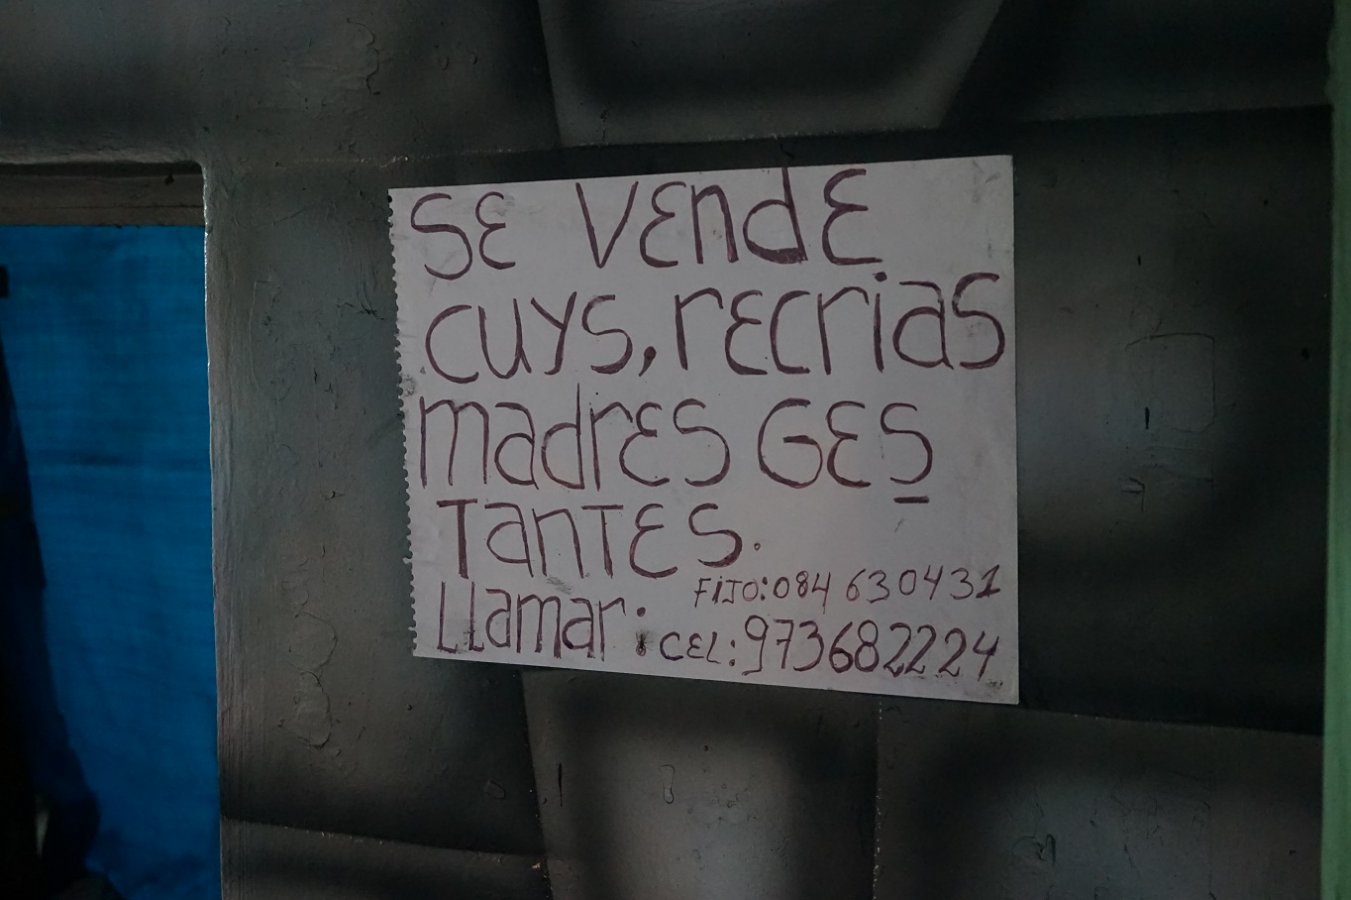 SE VEndE
cuys, rEcrias
madrEs GES
TanTES.
FIJO: 084 630431
LLamar: CEL: 973682224